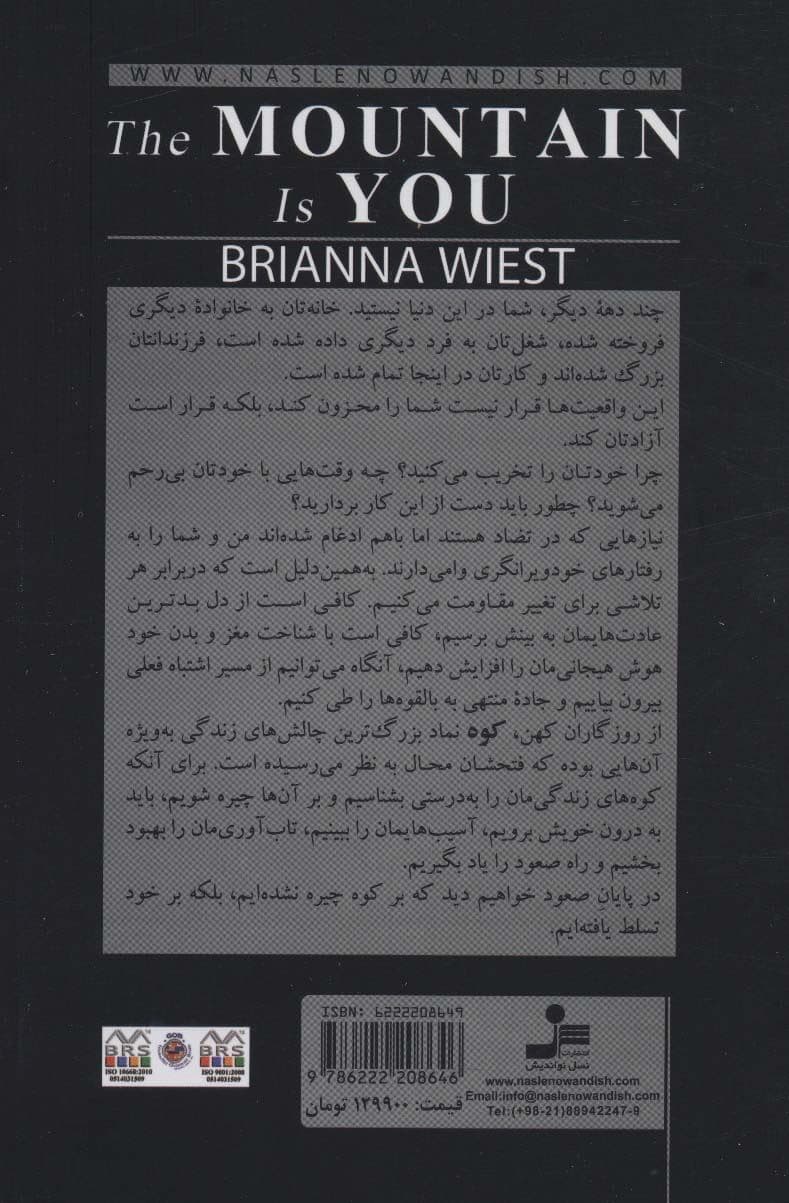 WWW.NASLENOWANDISH.COM
The MOUNTAIN
Is YOU
BRIANNA WIEST
چند دههٔ دیگر، شما در این دنیا نیستید. خانه‌تان به خانوادهٔ دیگری
فروخته شده، شغل‌تان به فرد دیگری داده شده است، فرزندانتان
بزرگ شده‌اند و کارتان در اینجا تمام شده است.
این واقعیت‌ها قرار نیست شما را محزون کند، بلکه قرار است
آزادتان کند.
چرا خودتان را تخریب می‌کنید؟ چه وقت‌هایی با خودتان بی‌رحم
می‌شوید؟ چطور باید دست از این کار بردارید؟
نیازهایی که در تضاد هستند اما باهم ادغام شده‌اند من و شما را به
رفتارهای خودویرانگری وامی‌دارند. به‌همین‌دلیل است که دربرابر هر
تلاشی برای تغییر مقاومت می‌کنیم. کافی است از دل بدترین
عادت‌هایمان به بینش برسیم، کافی است با شناخت مغز و بدن خود
هوش هیجانی‌مان را افزایش دهیم، آنگاه می‌توانیم از مسیر اشتباه فعلی
بیرون بیاییم و جادهٔ منتهی به بالقوه‌ها را طی کنیم.
از روزگاران کهن، کوه نماد بزرگ‌ترین چالش‌های زندگی به‌ویژه
آن‌هایی بوده که فتحشان محال به نظر می‌رسیده است. برای آنکه
کوه‌های زندگی‌مان را به‌درستی بشناسیم و بر آن‌ها چیره شویم، باید
به درون خویش برویم، آسیب‌هایمان را ببینیم، تاب‌آوری‌مان را بهبود
بخشیم و راه صعود را یاد بگیریم.
در پایان صعود خواهیم دید که بر کوه چیره نشده‌ایم، بلکه بر خود
تسلط یافته‌ایم.
ISBN: 6222208649
9 786222 208646
قیمت: ۱۲۹۹۰۰ تومان
انتشارات
نسل نواندیش
www.naslenowandish.com
Email:info@naslenowandish.com
Tel:(+98-21)88942247-9
BRS
ISO 10668:2010
0514031509
BRS
ISO 9001:2008
0514031509